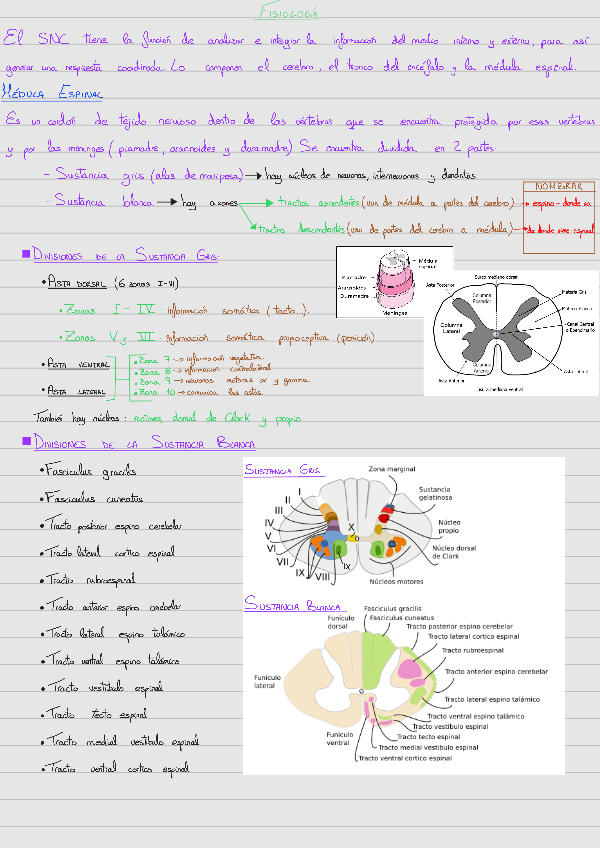 FISIOLOGÍA
El SNC tiene la función de analizar e integrar la información del medio interno y externo, para así
generar una respuesta coordinada. Lo componen el cerebro, el tronco del encéfalo y la médula espinal.
MÉDULA ESPINAL
Es un cordón de tejido nervioso dentro de las vértebras que se encuentra protegida por esas vértebras
y por las meninges (piamadre, aracnoides y duramadre) Se encuentra dividida en 2 partes:
- Sustancia gris (alas de mariposa) → hay núcleos de neuronas, interneuronas y dendritas
NOMBRAR
- Sustancia blanca → hay axones → tractos ascendentes (van de médula a partes del cerebro) → espino-donde va
→ tractos descendentes (van de partes del cerebro a médula) → de donde viene-espinal
DIVISIONES DE LA SUSTANCIA GRIS:
• ASTA DORSAL (6 zonas I-VI)
• Zonas I - IV: información somática (tacto...).
• Zonas V y VI: información somática propioceptiva (posición)
• ASTA VENTRAL
• ASTA LATERAL
• Zona 7 → información vegetativa.
• Zona 8 → información contralateral
• Zona 9 → neuronas motoras α y gamma.
• Zona 10 → comunica las astas.
También hay núcleos: motores, dorsal de Clark y propio.
Médula espinal
Piamadre
Aracnoides
Duramadre
Meninges
Surco mediano dorsal
Asta Posterior
Materia Gris
Columna Posterior
Materia Blanca
Columna Lateral
Canal Central o Ependimario
Columna Anterior
Asta Lateral
Asta Anterior
Fisura mediana ventral
DIVISIONES DE LA SUSTANCIA BLANCA
• Fasciculus gracilis
• Fasciculus cuneatus
• Tracto posterior espino cerebelar
• Tracto lateral cortico espinal
• Tracto rubroespinal
• Tracto anterior espino cerebelar
• Tracto lateral espino talámico
• Tracto ventral espino talámico
• Tracto vestíbulo espinal
• Tracto tecto espinal
• Tracto medial vestíbulo espinal
• Tracto ventral cortico espinal
SUSTANCIA GRIS
Zona marginal
I
II
III
IV
V
VI
VII
IX
VIII
X
IX
Sustancia gelatinosa
Núcleo propio
Núcleo dorsal de Clark
Núcleos motores
SUSTANCIA BLANCA
Funículo dorsal
Fasciculus gracilis
Fasciculus cuneatus
Tracto posterior espino cerebelar
Tracto lateral cortico espinal
Tracto rubroespinal
Funículo lateral
Tracto anterior espino cerebelar
Tracto lateral espino talámico
Tracto ventral espino talámico
Tracto vestíbulo espinal
Funículo ventral
Tracto tecto espinal
Tracto medial vestíbulo espinal
Tracto ventral cortico espinal